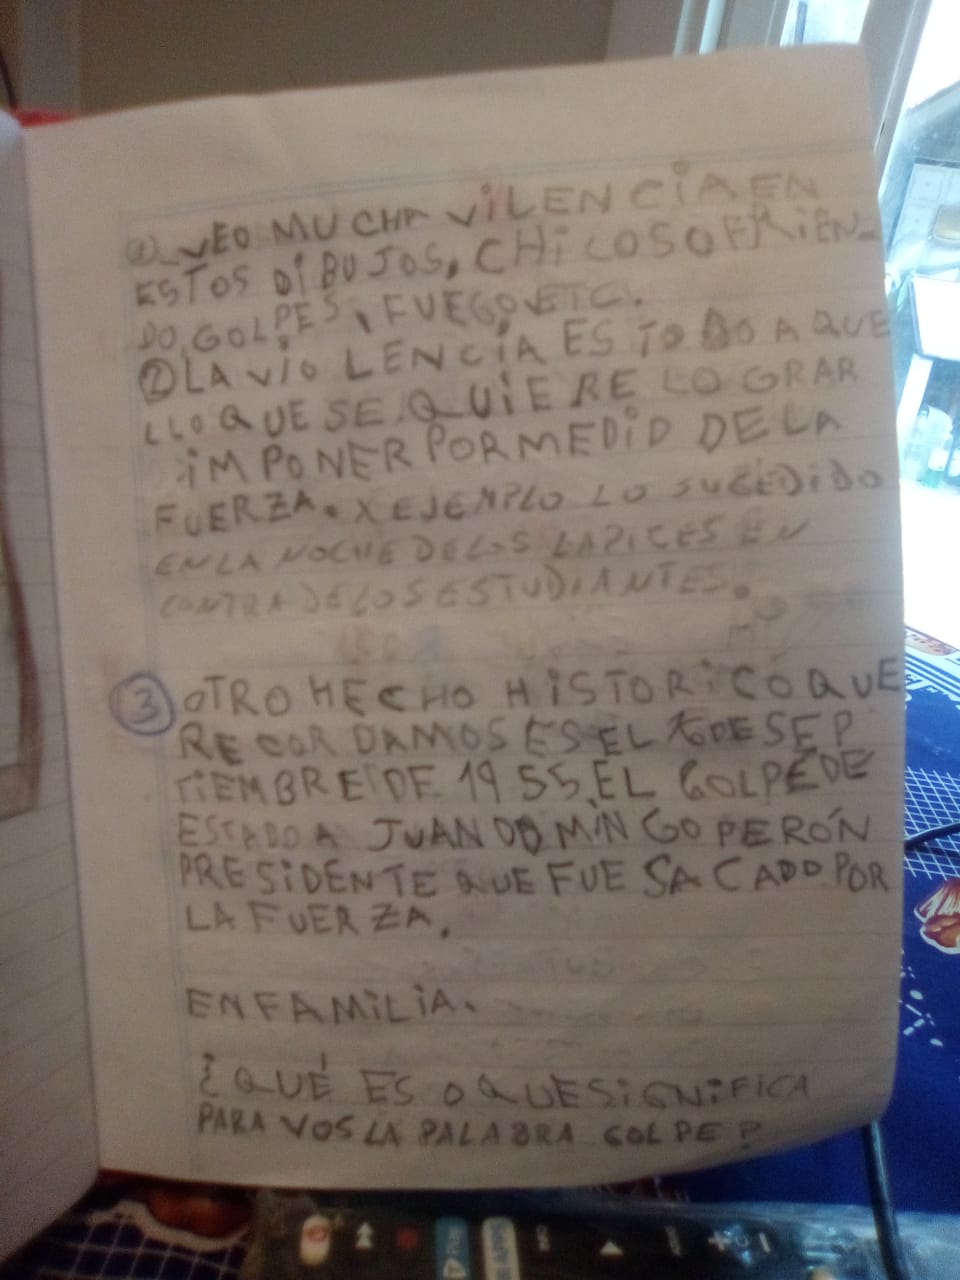 ① VEO MUCHA ViLENCiA EN
ESTOS DiBUJOS, CHiCOS OFRiEN-
DO, GOLPES, FUEGO, ETC.
② LA ViOLENCiA ES TODO A QUE
LLO QUE SE QUiERE LOGRAR
iMPONER POR MEDiD DE LA
FUERZA. X EJEMPLO LO SUCEDiDO
EN LA NOCHE DE LOS LAPICES EN
CONTRA DE LOS ESTUDIANTES.
③ OTRO HECHO HiSTORiCO QUE
RECORDAMOS ES EL DE SEP
TiEMBRE DE 1955, EL GOLPE DE
ESTADO A JUAN DOMiNGO PERÓN
PRESiDENTE QUE FUE SACADO POR
LA FUERZA.
EN FAMiLiA.
¿QUÉ ES O QUE SiGNiFiCA
PARA VOS LA PALABRA GOLPE?